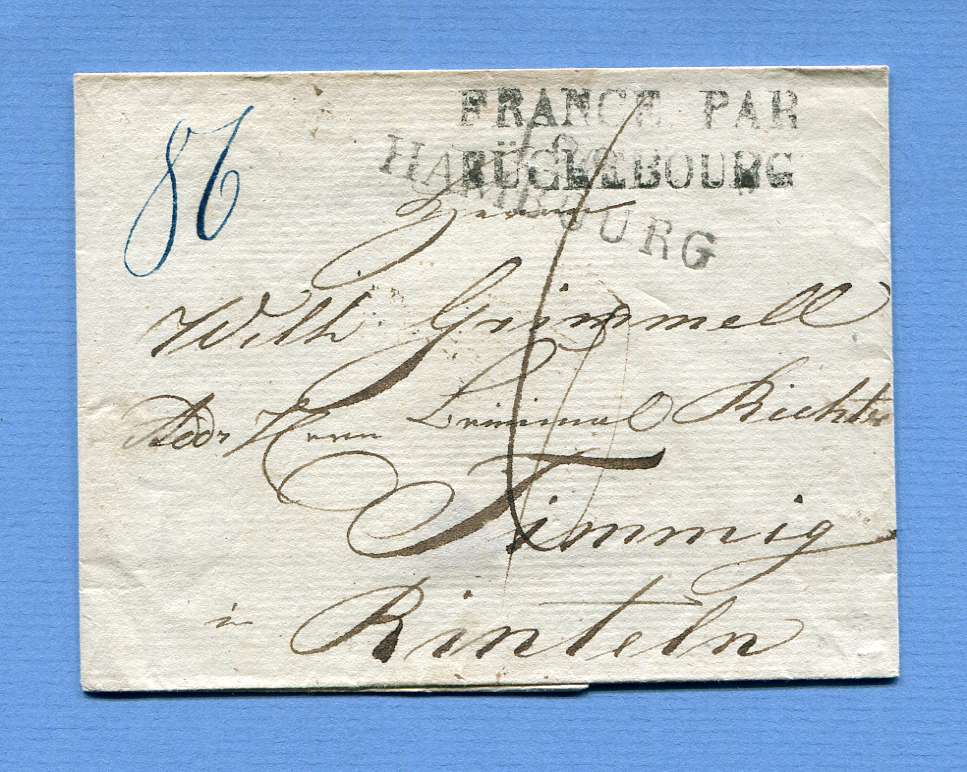 86
FRANCE PAR
BÜCKEBOURG
HAMBOURG
Herrn
Wilh. Grimmell
Addr Herrn Criminal Richter
Timmig
in Rinteln